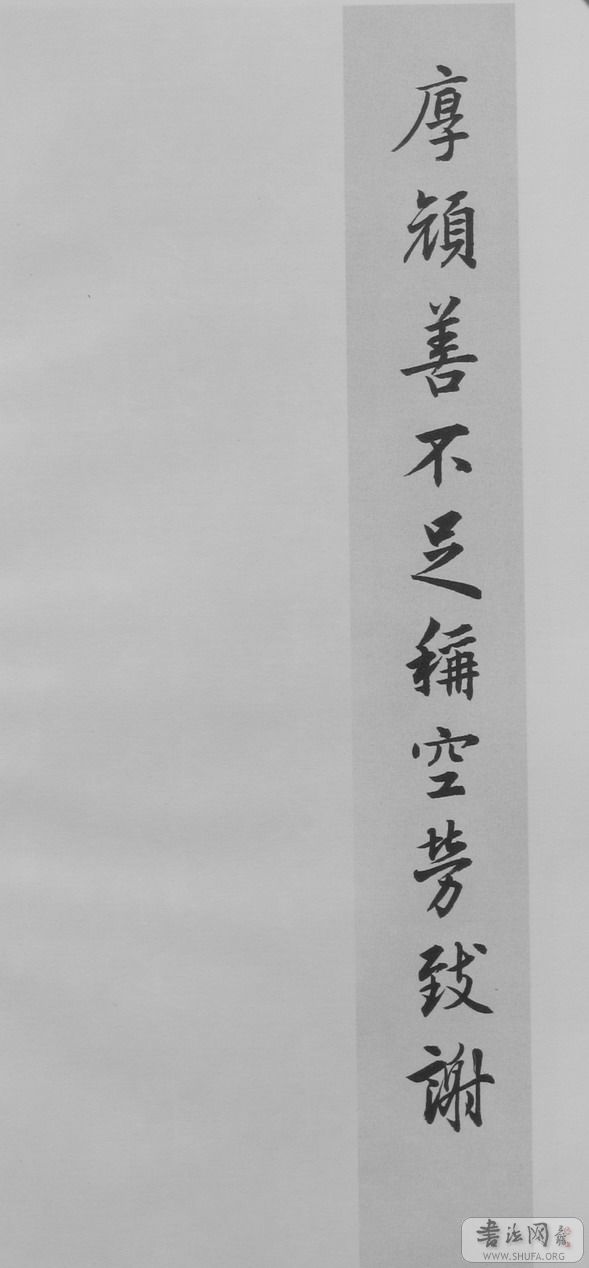 厚顔善不足稱空勞致謝
书法网
WWW.SHUFA.ORG